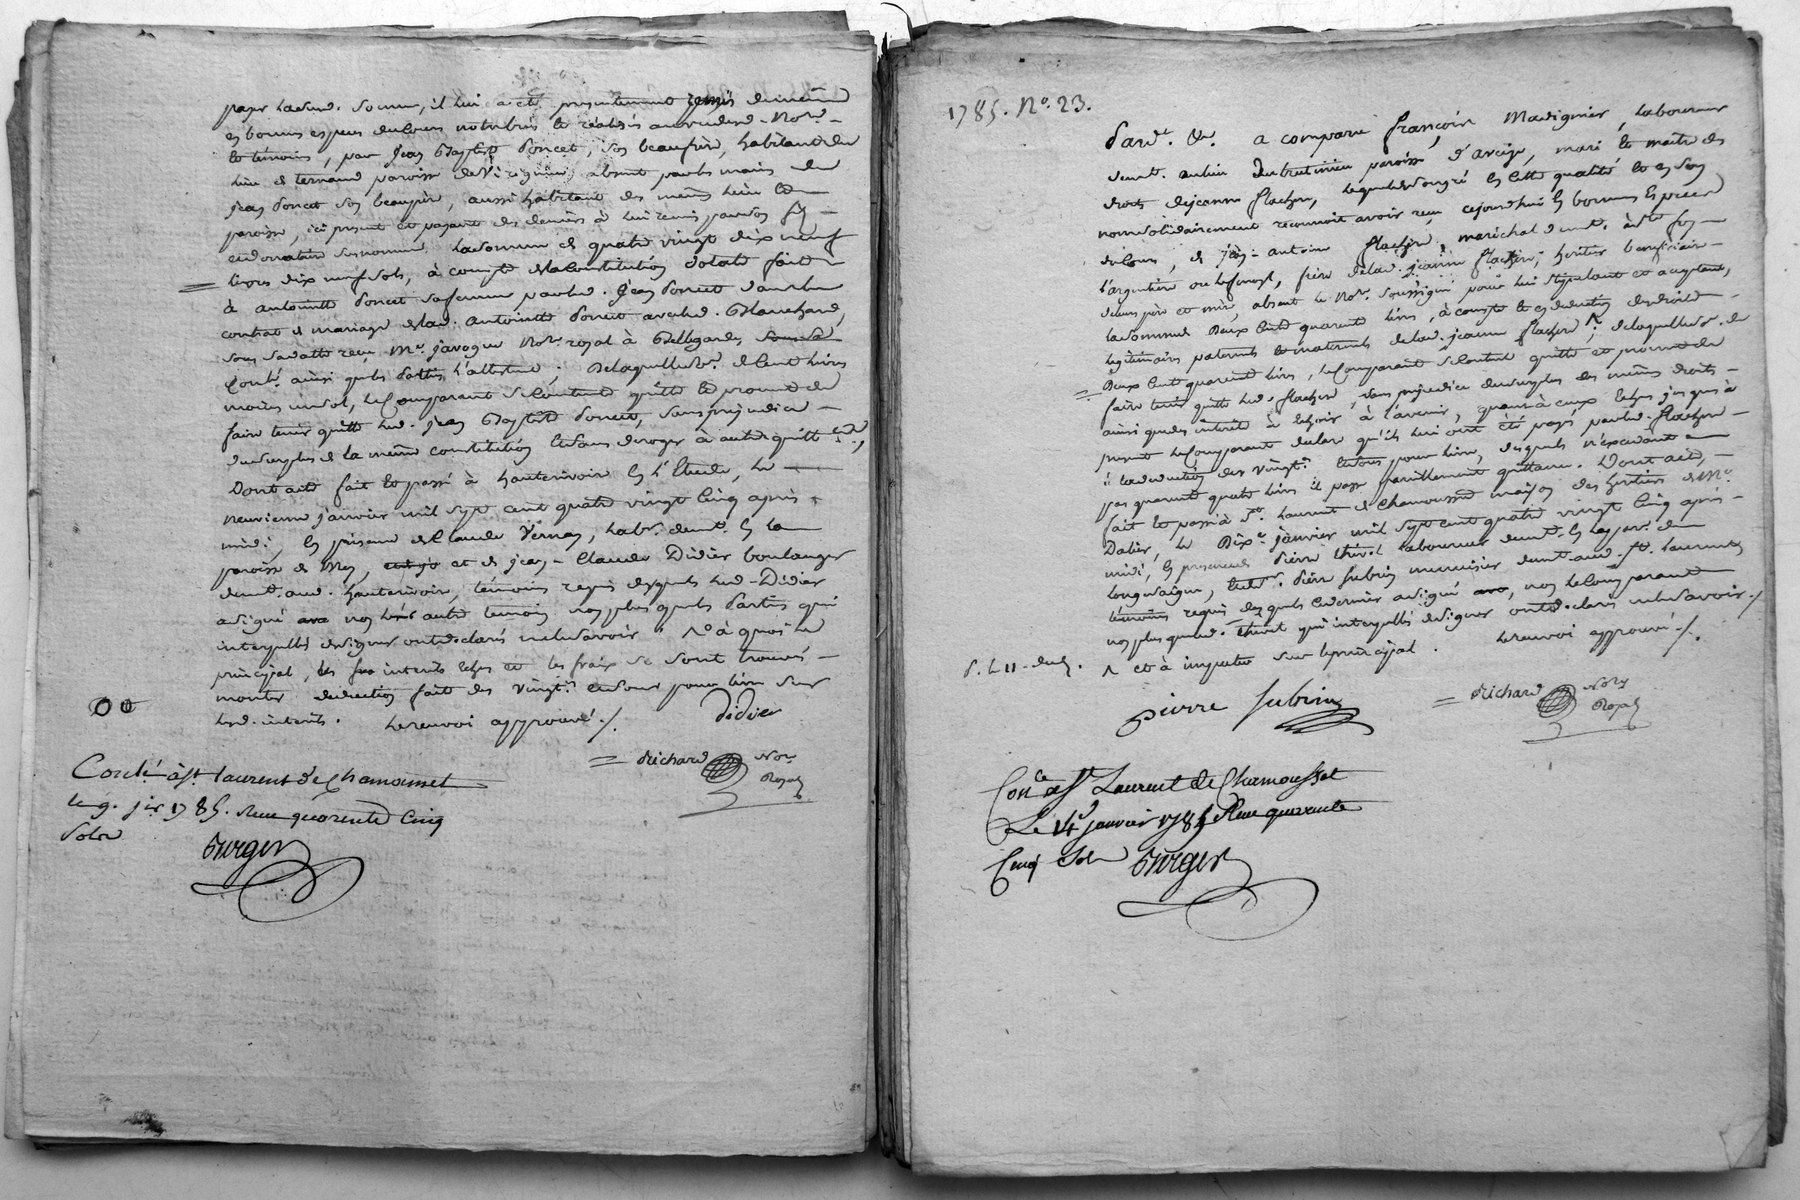 payer lad. somme, il lui a été présentement
en bonnes espèces du cours nombrées et réalisés
et témoins, par Jean Baptiste Poncet, son beaufrère, habitant du
lieu de ternand paroisse de Virigneu absent par les mains de
Jean Poncet son beaupère, aussi habitant des mêmes lieu et
paroisse, ici présent et payant des deniers à lui remis par son fils
la somme de quatre vingt dix neuf
livres dix neuf sols, à compte de la Constitution dotale faite
à antoinette Poncet sa femme par led. Jean Poncet dans leur
contrat de mariage de lad. antoinette Poncet avec led. Blanchard,
sous sa datte reçu Me. javogue Nore. royal à Bellegarde,
Conlé. ainsi que les parties l'attestent ; De laquelle de Cent livres
moins un sol, le Comparant se Contente quitte et promet de
faire tenir quitte led. Jean Baptiste Poncet, sans préjudice
du surplus de la même constitution et sans deroger à autre quittce.
Dont acte fait et passé à hauterivoir en l'Etude, le
neuvieme janvier mil sept cent quatre vingt Cinq après
midi, en présence de Claude Vernay, labr. demt. en la
paroisse de Mey, et de jean-Claude Didier boulanger
demt. aud. hauterivoir, témoins requis desquels led. Didier
a signé non autre temoin non plus que les Parties qui
interpellés de signer ont déclaré ne le savoir. à quoi le
principal, les interets echus et les frais se sont trouvés
monter deduction faite des vingt. et sous pour livre sur
lesd. interets. Le renvoi approuvé ./. Didier
Richard Nore. Royal
Conlé. à st. laurent de Chamousset
le 9. jer. 1785. Reçu quarente Cinq
Sols
Burger
1785. No. 23.
Pardt. &c. a comparu françois Madignier, laboureur
demt. au lieu Dubretinieu paroisse d'arcize, mari et maitre des
droits de jeanne flachere, lequel de son gré en cette qualité et en son
nom solidairement reconnoit avoir reçu cejourd'hui en bonnes Especes
du Cours, de jean-antoine flachere, maréchal demt. à ste foy
l'argentiere ou le forest, frere de lad. jeanne flachere, heritier beneficiaire
de leurs père et mère, absent le Nore. soussigné pour lui stipulant et acceptant,
la somme Deux Cents quarente livres, à compte et en deduction des droits
legitimaires paternels et maternels de lad. jeanne flachere ; de laquelle de
Deux Cent quarente livres, le Comparant se Contente quitte et promet de
faire tenir quitte led. flachere, sans prejudice du surplus des mêmes droits
ainsi que des intérêts à échoir à l'avenir, quant à ceux échus jusques à
présent le Comparant declare qu'ils lui ont été payés par led. flachere
à la deduction des vingt. et sous pour livre, desquels n'excedant
pas quarente quatre livres il passe pareillement quittance. Dont acte,
fait et passé à St. Laurent de Chamousset maison des heritiers de Me.
Dalier, le Dixe. janvier mil sept cent quatre vingt Cinq après
midi, en présence de Pierre thevit laboureur demt. en la par. de
longesaigne, et de sr. Pierre subrin menuisier demt. aud. st. laurent
témoins requis desquels ce dernier a signé non le Comparant
non plus que led. thevit qui interpellés de signer ont déclaré ne le savoir ./.
et à imputer sur le principal. Le renvoi approuvé ./.
pierre subrin
Richard Nore. Royal
Conce. à St. Laurent de Chamousset
Le 14 janvier 1785 Reçu quarante
Cinq Sols Burger